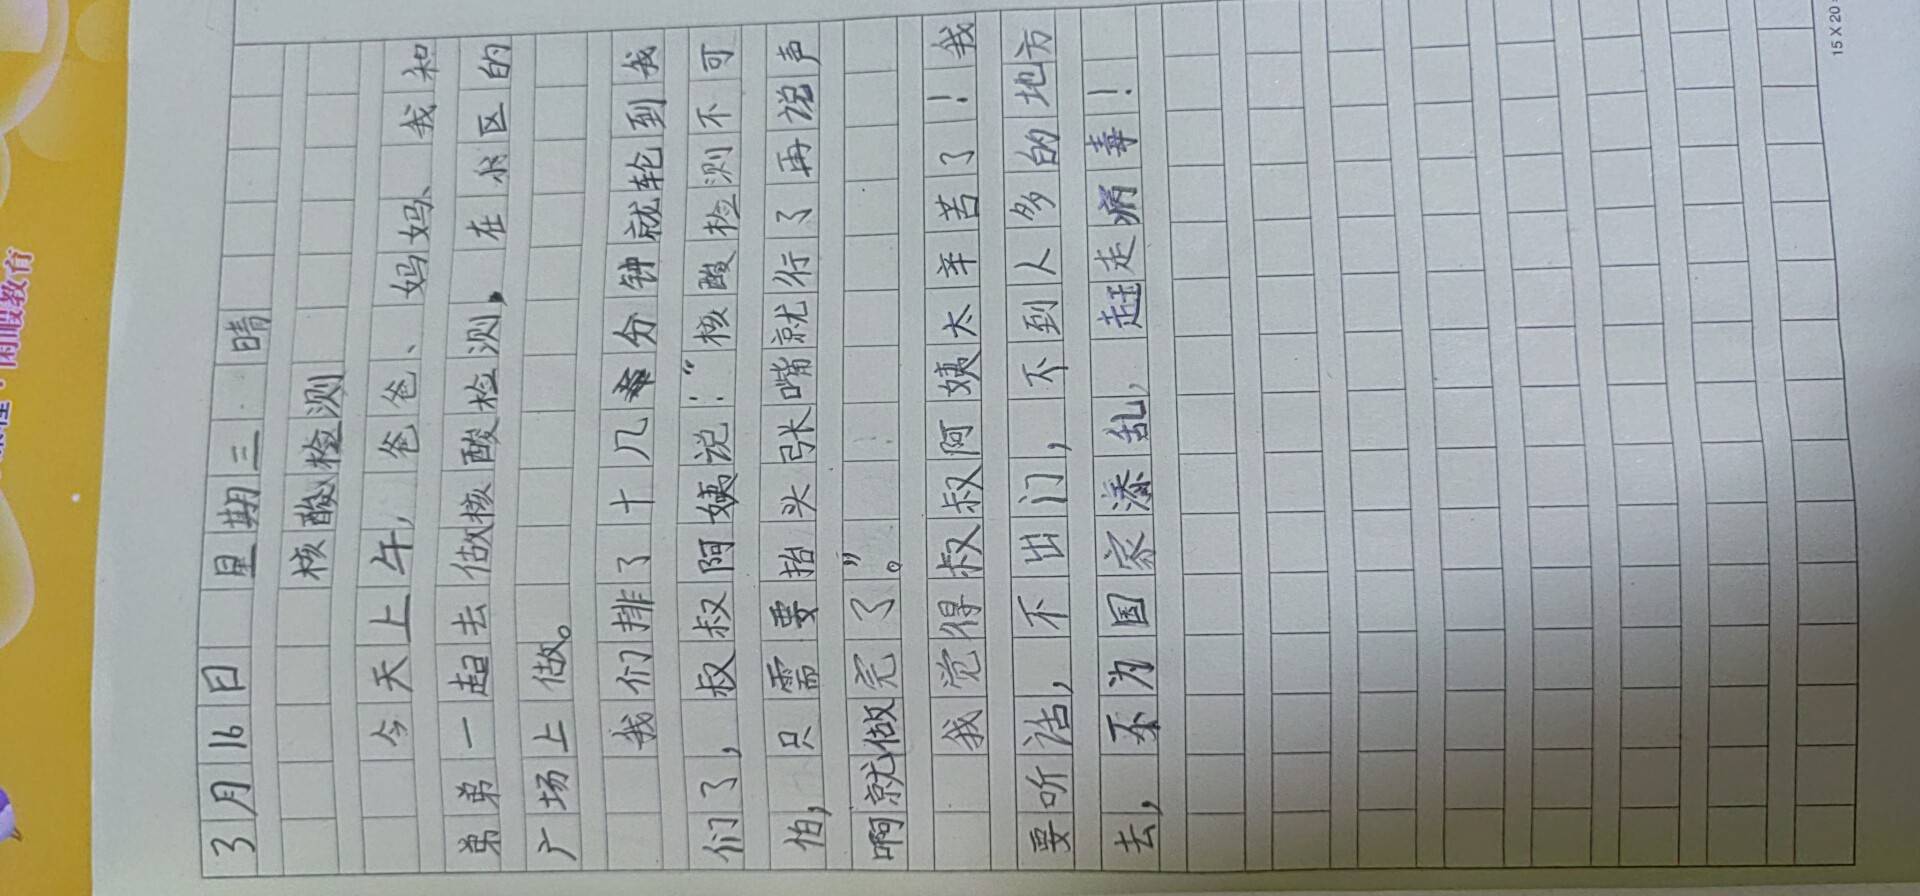 3月16日 星期三 晴
核酸检测
今天上午，爸爸、妈妈、我和
弟弟一起去做核酸检测，在小区的
广场上做。
我们排了十几分钟就轮到我
们了，叔叔阿姨说：“核酸检测不可
怕，只需要抬头张嘴就行了再说声
啊就做完了”。
我觉得叔叔阿姨太辛苦了！我
要听话，不出门，不到人多的地方
去，不为国家添乱，赶走病毒！
15×20=
闲暇教育